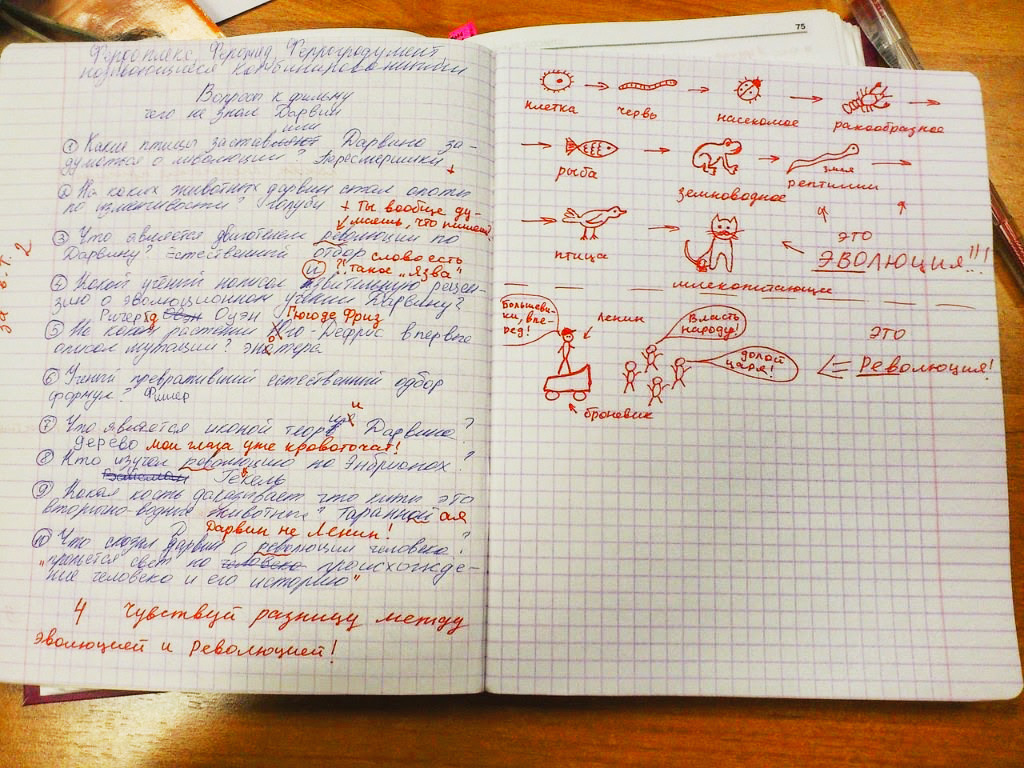 75
Вопросы к фильму
чего не знал Дарвин
или
① Какие птицы заставили Дарвина за-
думаться о революции? Галапагосские
+
② На каких животных дарвин стал опыты
по изменчивости? голуби
+ ты вообще ду-
маешь, что пишешь
③ Что является двигателем революции по
Дарвину? Естественный отбор
слово есть
такое „язва"
и ?!
④ Какой учёный написал язвительную рецен-
зию о эволюционном учении Дарвину?
Ричард Оуэн
Гюго де Фриз
⑤ На каком растении Юго-Дефрис впервые
описал мутации? энотера
⑥ Учёный превративший естественный одбор
формул? Фишер
⑦ Что является иконой теории Дарвина?
дерево мои глаза уже кровоточат!
⑧ Кто изучал революцию по Энбрионах?
Гекель
⑨ Какая кость доказывает что киты это
вторично-водные животные? Таранной ая
Дарвин не Ленин!
⑩ Что сказал дарвин о революции человека?
„прольётся свет на человека происхожде-
ние человека и его историю"
4 Чувствуй разницу между
Эволюцией и Революцией!
клетка червь насекомое ракообразное
рыба земноводное змея
рептилии
птица
млекопитающие
это
ЭВОЛЮЦИЯ!!!
Большеви-
ки, впе-
ред!
Ленин
Власть
народу!
долой
царя!
броневик
это
Революция!